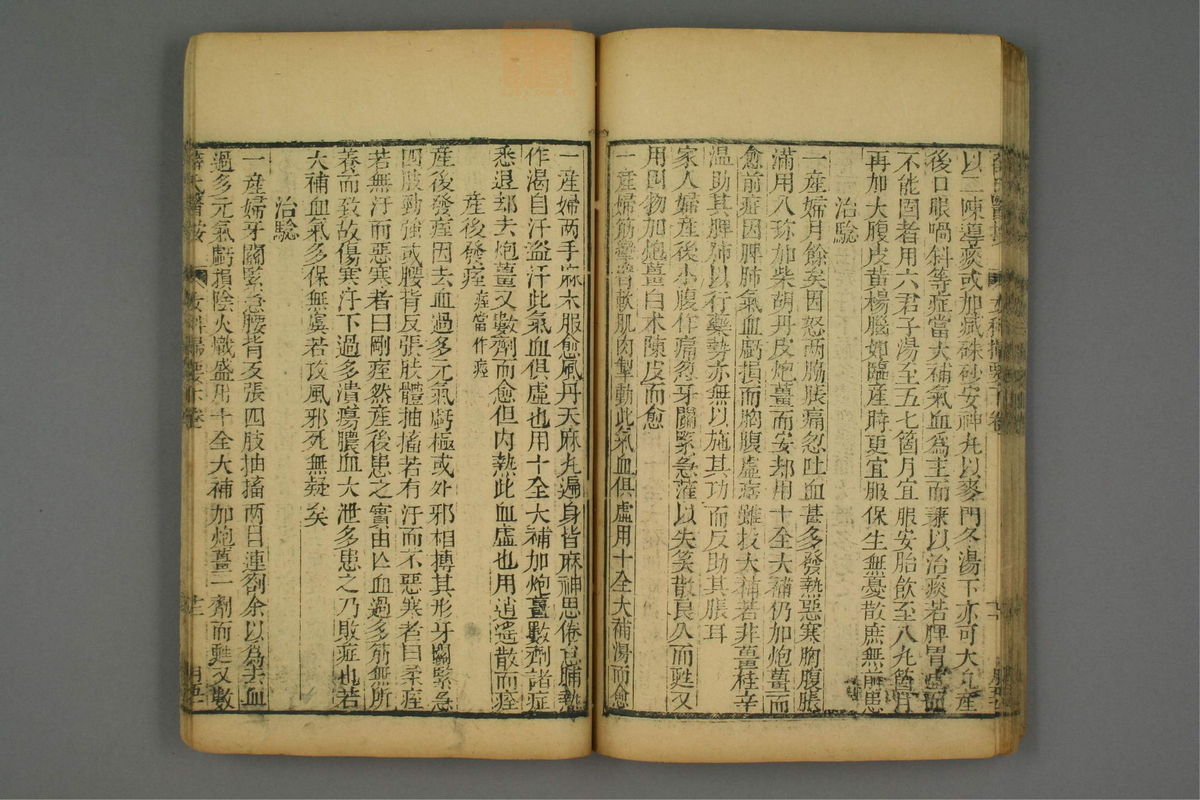 以二陳導痰或加薄硃砂安神丸以麥門冬湯下亦可大凡產
後口眼喎斜等症當大補氣血為主而兼以治痰若脾胃虛而
不能固者用六君子湯至五七箇月宜服安胎飲至八九箇月
再加大腹皮黃楊腦如臨產時更宜服保生無憂散庶無前患
治驗
一產婦月餘矣因怒兩脇脹痛忽吐血甚多發熱惡寒胸腹脹
滿用八珍加柴胡丹皮炮薑而安却用十全大補仍加炮薑而
愈前症因脾肺氣血虧損而胸腹虛痞雖投大補若非薑桂辛
溫助其脾肺以行藥勢亦無以施其功而反助其脹耳
家人婦產後小腹作痛忽牙關緊急灌以失笑散良久而甦又
用四物加炮薑白术陳皮而愈
一產婦筋攣臂軟肌肉掣動此氣血俱虛用十全大補湯而愈
一產婦兩手麻木服愈風丹天麻丸遍身皆麻神思倦怠晡熱
作渴自汗盜汗此氣血俱虛也用十全大補加炮薑數劑諸症
悉退却去炮薑又數劑而愈但內熱此血虛也用逍遙散而痊
產後發痓 痓當作痙
產後發痓因去血過多元氣虧極或外邪相搏其形牙關緊急
四肢勁強或腰背反張肢體抽搐若有汗而不惡寒者曰柔痓
若無汗而惡寒者曰剛痓然產後患之實由亡血過多筋無所
養而致故傷寒汗下過多潰瘍膿血大泄多患之乃敗症也若
大補血氣多保無虞若攻風邪死無疑矣
治驗
一產婦牙關緊急腰背反張四肢抽搐兩目連劄余以為去血
過多元氣虧損陰火熾盛用十全大補加炮薑一劑而甦又數
薛氏醫按 女科撮要下卷 十二